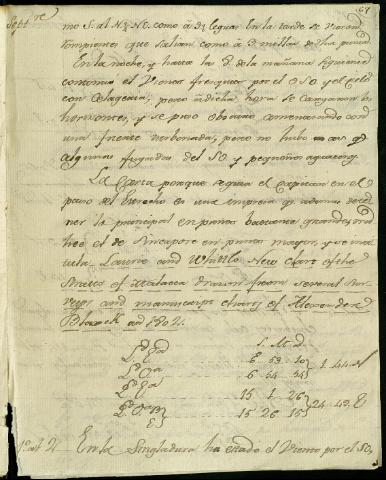 67
Septre
mo S. al N¼NE. como à 3½ leguas. En la tarde se vieron
rompientes que salian como à 3 millas de dha punta
En la noche, y hasta las 8 de la mañana siguiente
continuó el Viento fresquito por el OSO y el cielo
con celageria, pero à dicha hora se cargaron los
horizontes, y se puso obscuro amenazando con
una fuerte turbonada, pero no hubo mas q
algunas fugadas del SO. y pequeños aguaceros
La Carta porque seguia el capitan en el
paso del Estrecho es una impresa q ademas de
ner la principal en punto bastante grande,
el de Sincapore en punto mayor, y se
Laurie and Whittle New Chart of the
Straits of Malacca drawn from several Sur-
veys and manuscript charts of Alexander
Black ad 1802.
S. M. D.
6 53 10
6 54 54 } 1.44. N
15 1 26
15 26 15 } 24.49. E
En la Singladura ha estado el Viento por el SO,